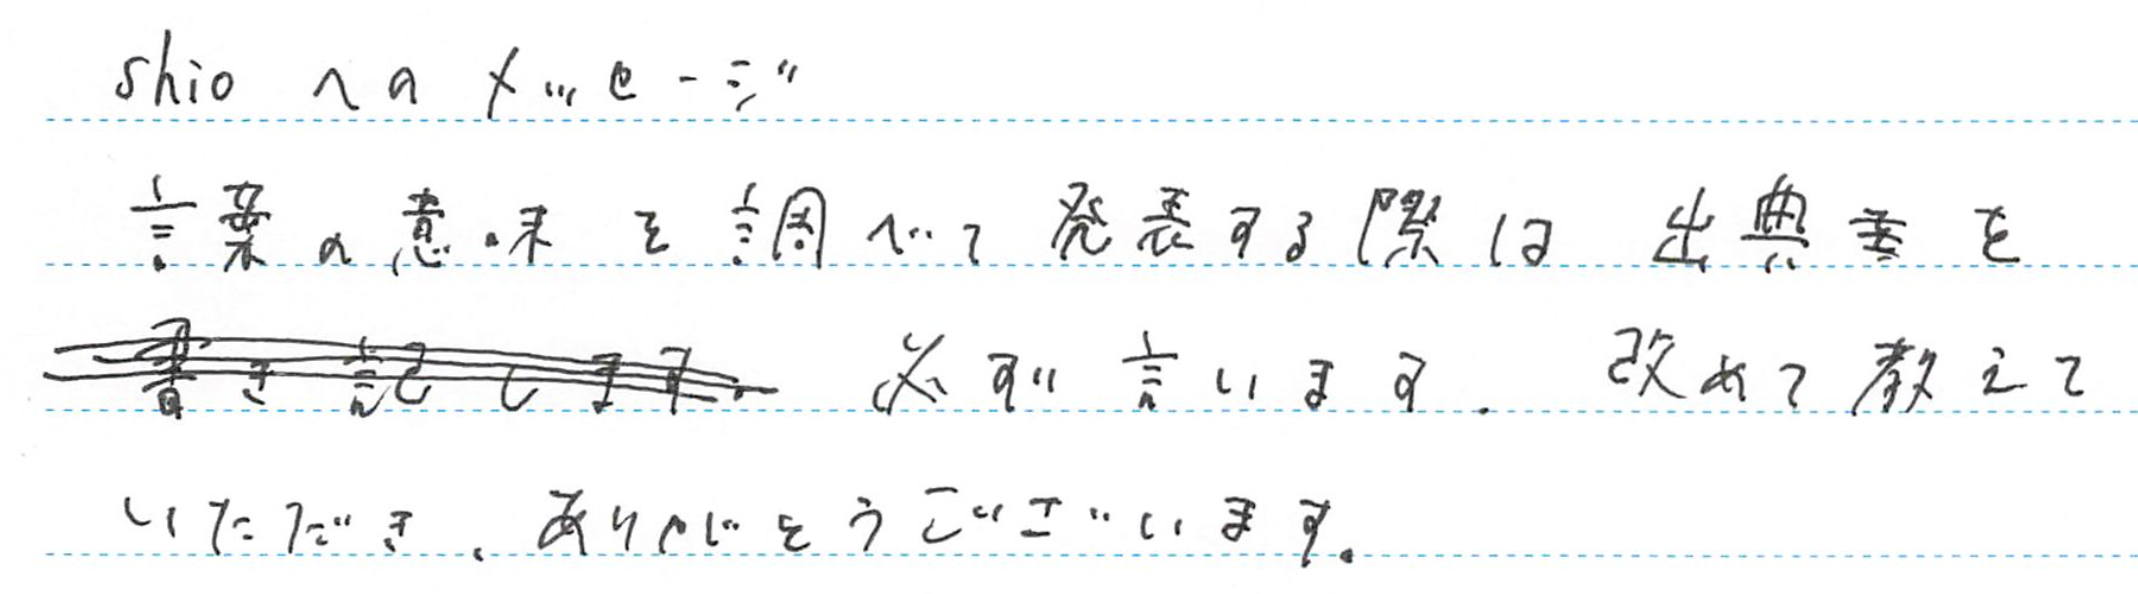 shioへのメッセージ
言葉の意味を調べて発表する際は 出典書を
書き記します。 必ず言います. 改めて教えて
いただき、ありがとうございます。